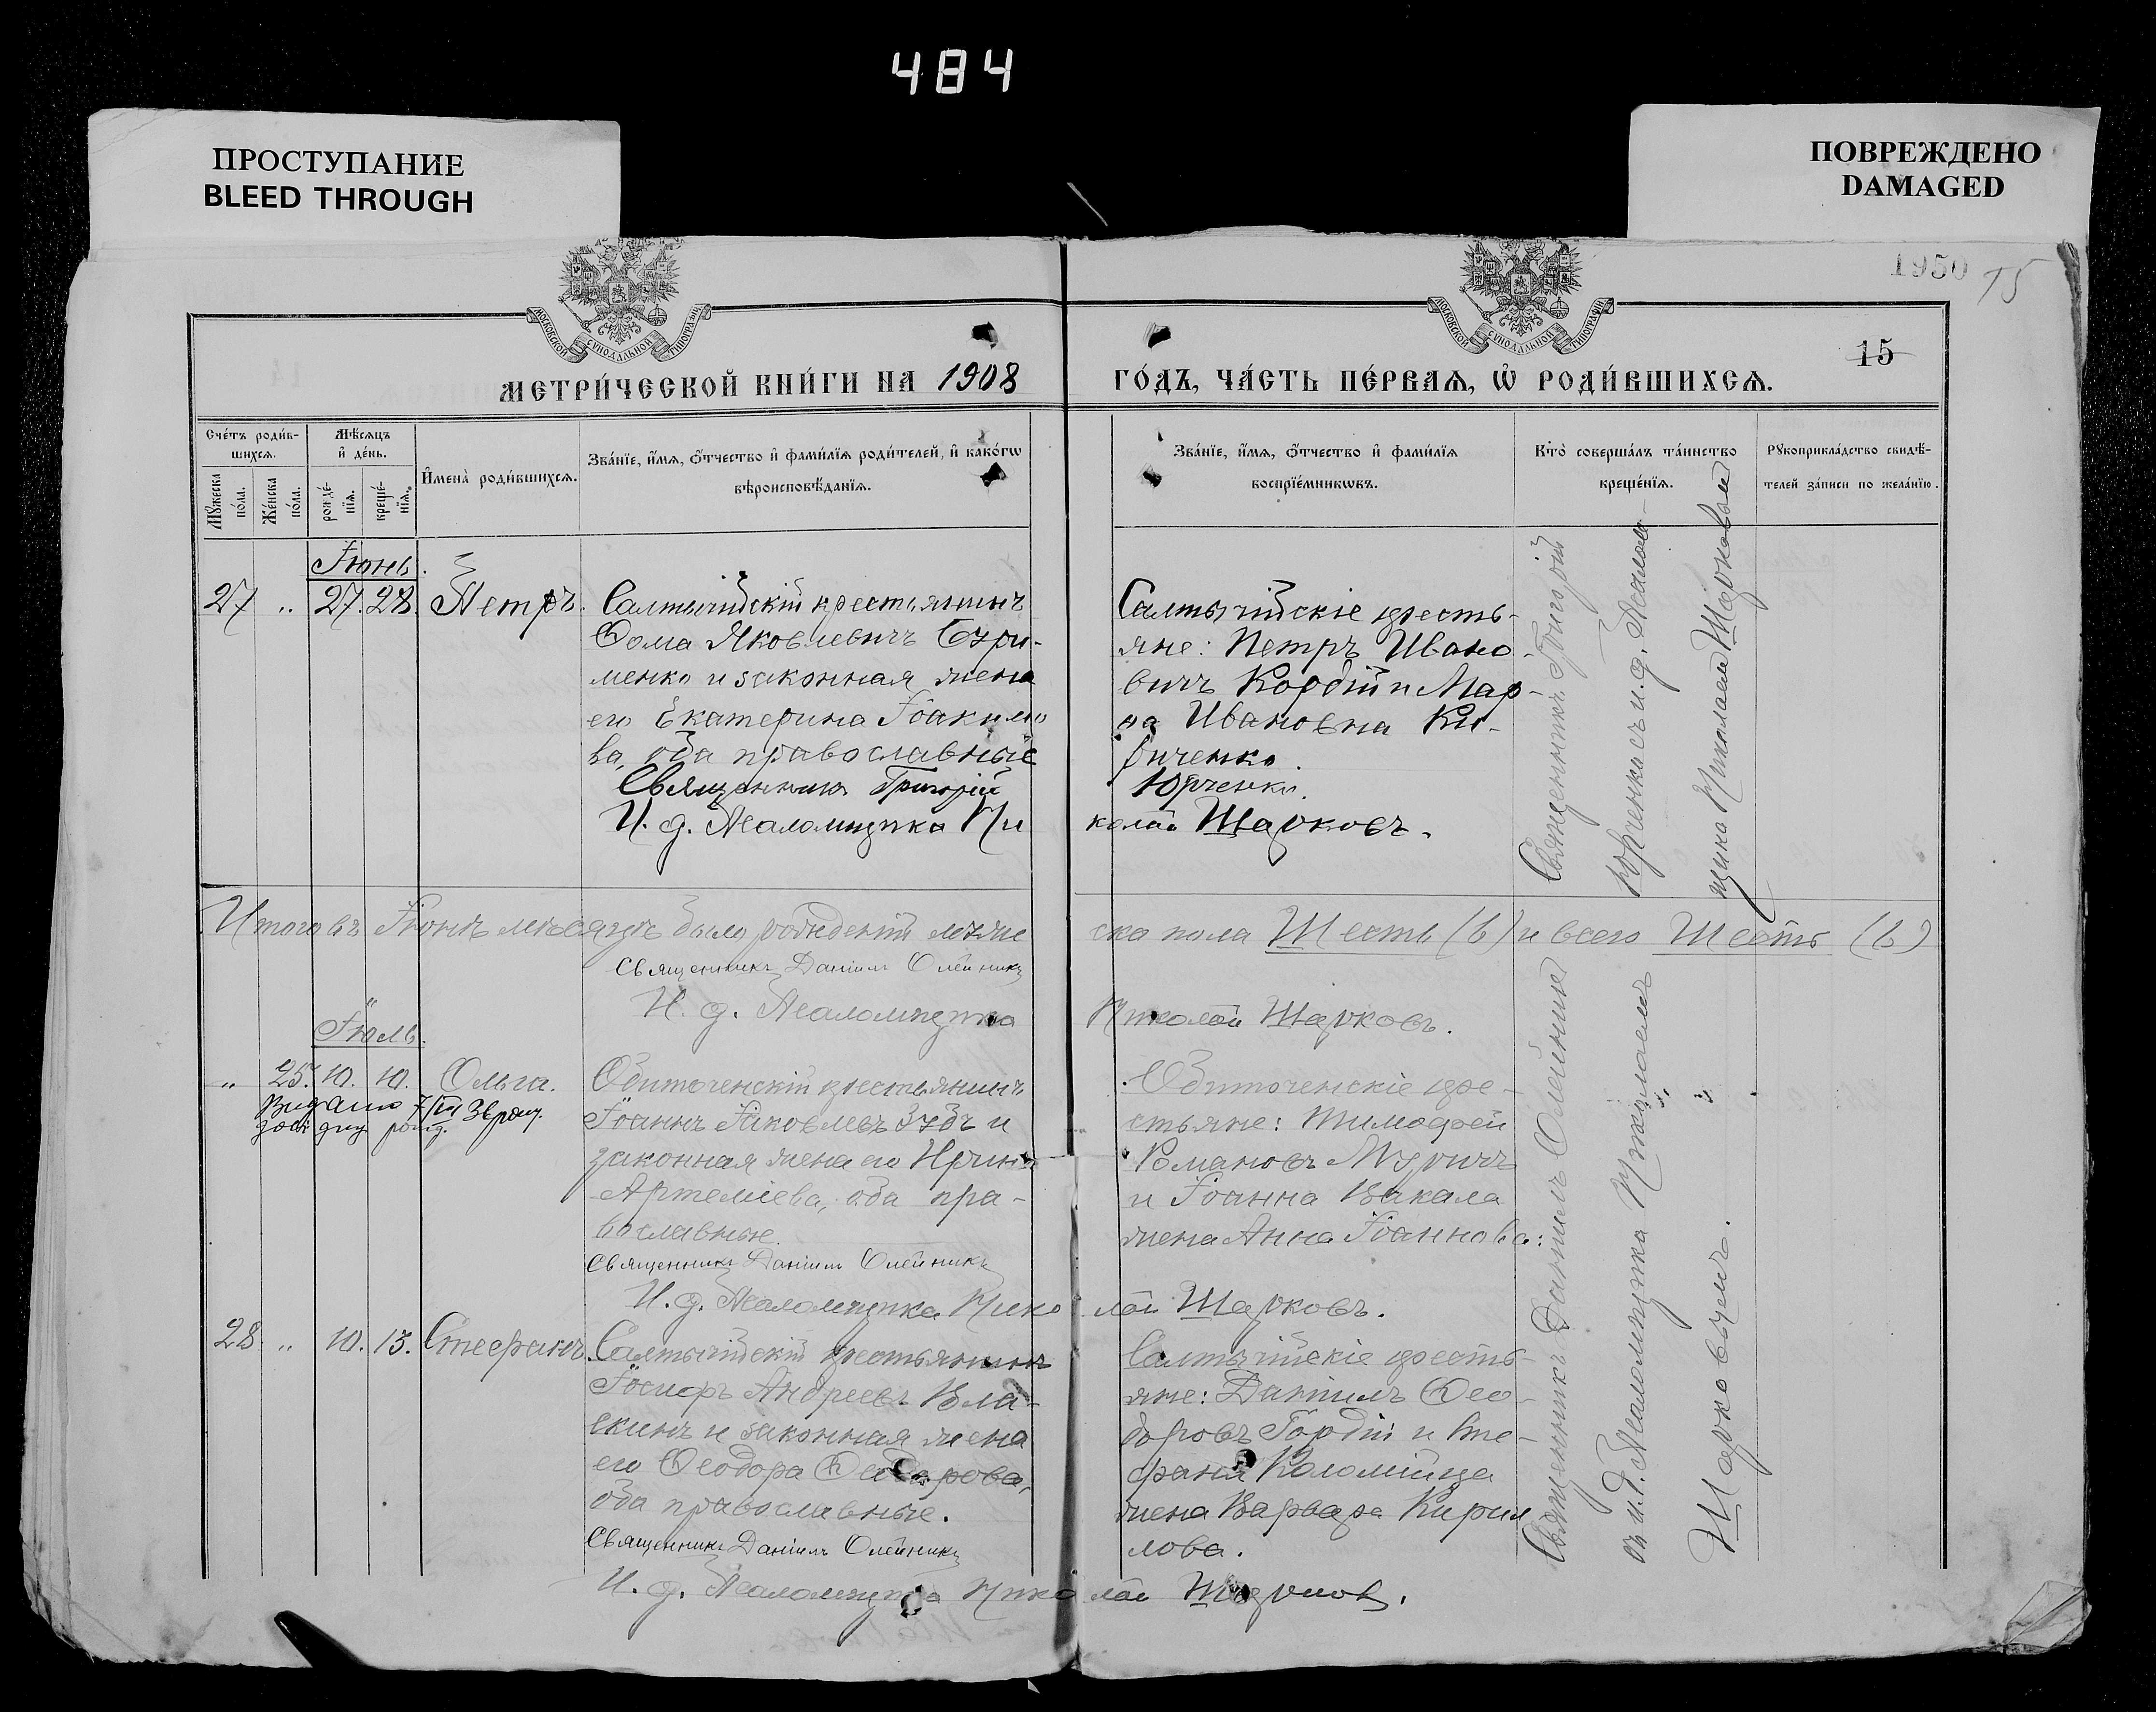 484
ПРОСТУПАНИЕ
BLEED THROUGH
ПОВРЕЖДЕНО
DAMAGED
1950 15
МОСКОВСКОЙ СѴНОДАЛЬНОЙ ТИПОГРАФІИ
МОСКОВСКОЙ СѴНОДАЛЬНОЙ ТИПОГРАФІИ
15
МЕТРИ́ЧЕСКОЙ КНИ́ГИ НА 1908
ГО́ДЪ, ЧА́СТЬ ПЕ́РВАѦ, Ѡ҆ РОДИ́ВШИХСѦ.
Сче́тъ роди́в-
шихсѧ.
Мꙋ́жеска по́ла.
Же́нска по́ла.
Мѣ́сѧцъ
и҆ де́нь.
рожде́-
нїѧ.
креще́-
нїѧ.
И҆мена̀ роди́вшихсѧ.
Зва́нїе, и҆́мѧ, ѻ҆́тчество и҆ фами́лїѧ роди́телей, и҆ како́гѡ
вѣроисповѣ́данїѧ.
Зва́нїе, и҆́мѧ, ѻ҆́тчество и҆ фами́лїѧ
воспрїе́мникѡвъ.
Кто̀ соверша́лъ та́инство
креще́нїѧ.
Рꙋкоприкла́дство свидѣ́-
телей за́писи по жела́нїю.
Іюнь.
27 „ 27. 28. Петръ.
Салтычійскій крестьянинъ
Ѳома Яковлевичъ
менко и законная жена
его Екатерина Іоакимо
ва, оба православные
Священникъ Григорій
И. д. Псаломщика Ни
Салтычійскіе кресть-
яне: Петръ Ивано-
вичъ Кордій и Мар-
ѳа Ивановна Ки-
риченко.
Юрченко.
колай Шарковъ.
Священникъ Григорій
Юрченко съ и. д. Псалом-
щика Николаем Шарковым
Итого въ Іюнѣ мѣсяцѣ было рожденій муже
ска пола Шесть (6) и всего Шесть (6)
Священникъ Даніилъ Олейникъ
И. д. Псаломщика
Николай Шарковъ.
Іюль.
„ 25. 10. 10. Ольга.
Видано 7/III 36 року.
Обиточенскій крестьянинъ
Іоаннъ Іаковлевъ Зубъ и
законная жена его Ирина
Артеміева, оба пра-
вославные.
Священникъ Даніилъ Олейникъ
И. д. Псаломщика Нико
Обиточенскіе кре-
стьяне: Тимофей
Романовъ
и Іоанна Вакала
жена Анна Іоаннова:
лай Шарковъ.
28. „ 10. 13. Стефанъ.
Салтычійскій крестьянинъ
Іосифъ Андреевъ Вла-
скинъ и законная жена
его Ѳеодора Ѳеодорова,
оба православные.
Священникъ Даніилъ Олейникъ
И. д. Псаломщика Нико
Салтычійскіе кресть-
яне: Даніилъ Ѳео-
доровъ Гордій и Сте-
фана Коломійца
жена Варвара Кирил
лова.
лай Шарковъ.
Священникъ Даниилъ Олейник
съ и. д. Псаломщика Николаемъ
Шарковымъ.